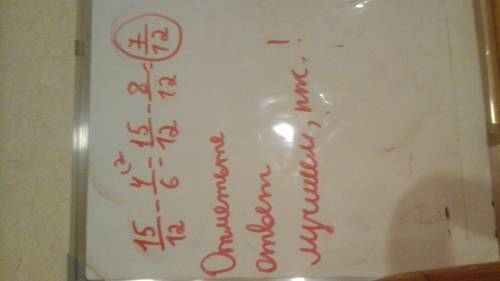 15/12 - 4/6 ² = 15/12 - 8/12 = 7/12
Отметьте
ответ
лучшем, пж.!